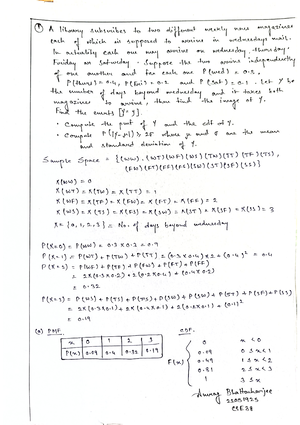 ① A library subscribes to two different weekly news magazines
each of which is supposed to arrive in wednesdays mail.
In actuality each one may arrive on wednesday, thursday,
Friday or Saturday. Suppose the two arrive independently
of one another and for each one P(wed) = 0.3,
P(thurs) = 0.4, P(fri) = 0.2 and P(sat) = 0.1. Let Y be
the number of days beyond wednesday and it takes both
magazines to arrive, then find the image of Y.
Find the events [Y=y].
• Compute the pmf of Y and the cdf of Y.
• Compute
and standard deviation of Y.
Sample Space =
X(WW) = 0
X(WT) = X(TW) = X(TT) = 1
X(WF) = X(TF) = X(FW) = X(FT) = X(FF) = 2
= 3
X = {0, 1, 2, 3} = No. of days beyond wednesday
P(X=0) = P(WW) = 0.3 x 0.3 = 0.9
P(X=1) = P(WT) + P(TW) + P(TT) = 0.4
P(X=2) = P(WF) + P(TF) + P(FW) + P(FT) + P(FF)
= 2x(0.3x0.2) + 2(0.2x0.4) + (0.2x0.2)
= 0.32
P(X=3) =
= 2x(0.3x0.1) + 2x(0.4x0.1) + 2(0.2x0.1) + (0.1)²
= 0.19
(a) PMF CDF
x 0 1 2 3
P(x) 0.09 0.4 0.32 0.19
F(x) {
0 x < 0
0.09 0 ≤ x < 1
0.49 1 ≤ x < 2
0.81 2 ≤ x < 3
1 3 ≤ x
Anurag Bhattacharjee
CSE38